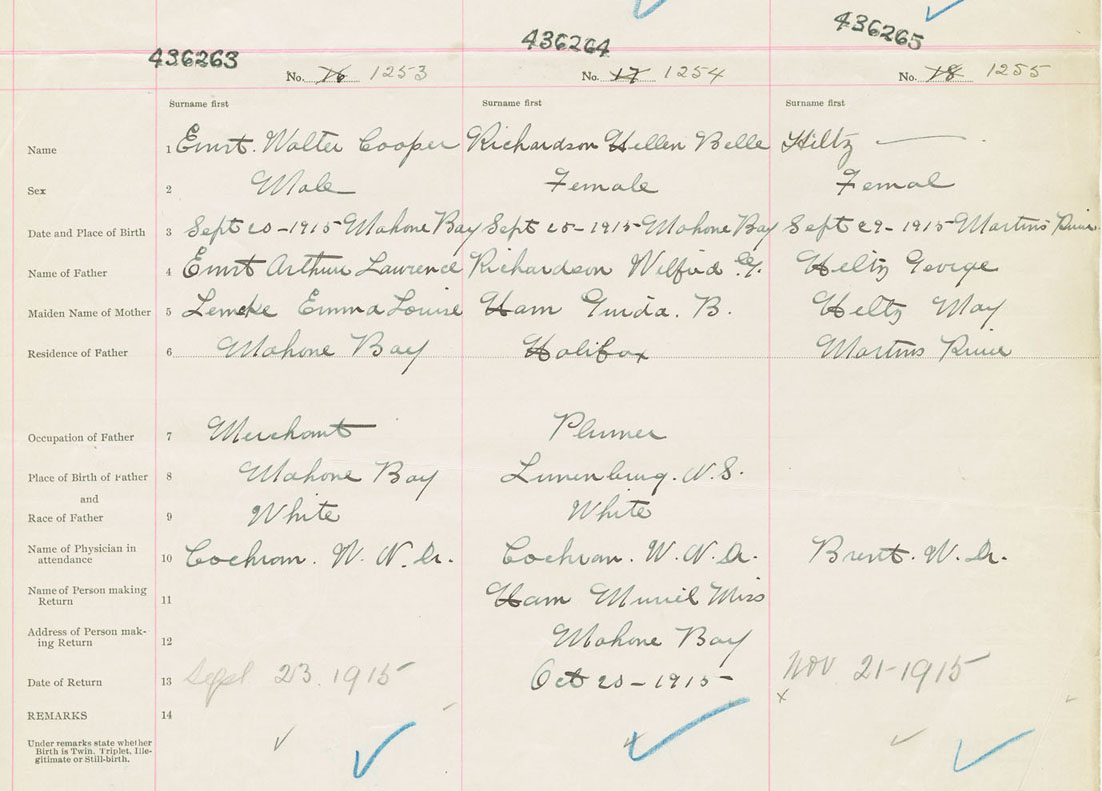 436263 436264 436265
No. 16 1253 No. 17 1254 No. 18 1255
Surname first Surname first Surname first
Name 1 Ernst. Walter Cooper Richardson Hellen Belle Hiltz —
Sex 2 Male Female Femal
Date and Place of Birth 3 Sept 20-1915-Mahone Bay Sept 25-1915-Mahone Bay Sept 29-1915-Martins River
Name of Father 4 Ernst Arthur Lawrence Richardson Wilfred Hiltz George
Maiden Name of Mother 5 Lemcke Emma Louise Ham Guida. B. Hiltz May
Residence of Father 6 Mahone Bay Halifax Martins River
Occupation of Father 7 Merchant Plumer
Place of Birth of Father 8 Mahone Bay Lunenburg. N.S.
and
Race of Father 9 White White
Name of Physician in
attendance 10 Cochran. W. N. Dr. Cochran. W. N Dr. Brent. W. Dr.
Name of Person making
Return 11 Ham Muriel Miss
Address of Person mak-
ing Return 12 Mahone Bay
Date of Return 13 Sept 23. 1915 Oct 20-1915- Nov 21-1915
REMARKS 14
Under remarks state whether
Birth is Twin, Triplet, Ille-
gitimate or Still-birth.